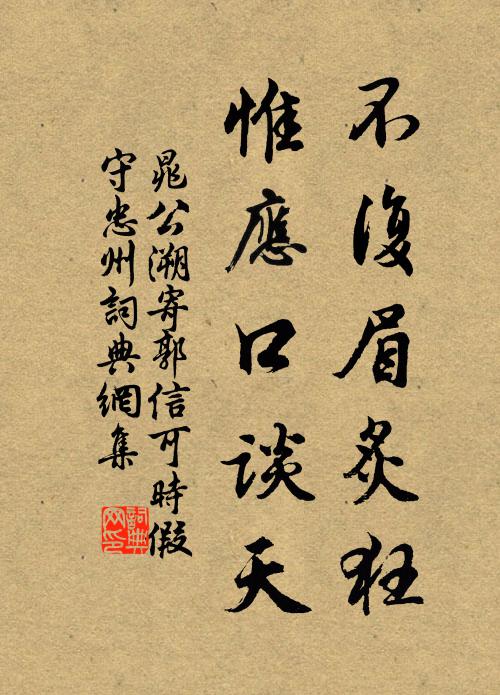 不復眉炙狂
惟應口談天
晁公溯寄郭信可時假
守忠州詞典網集
詞典
网印